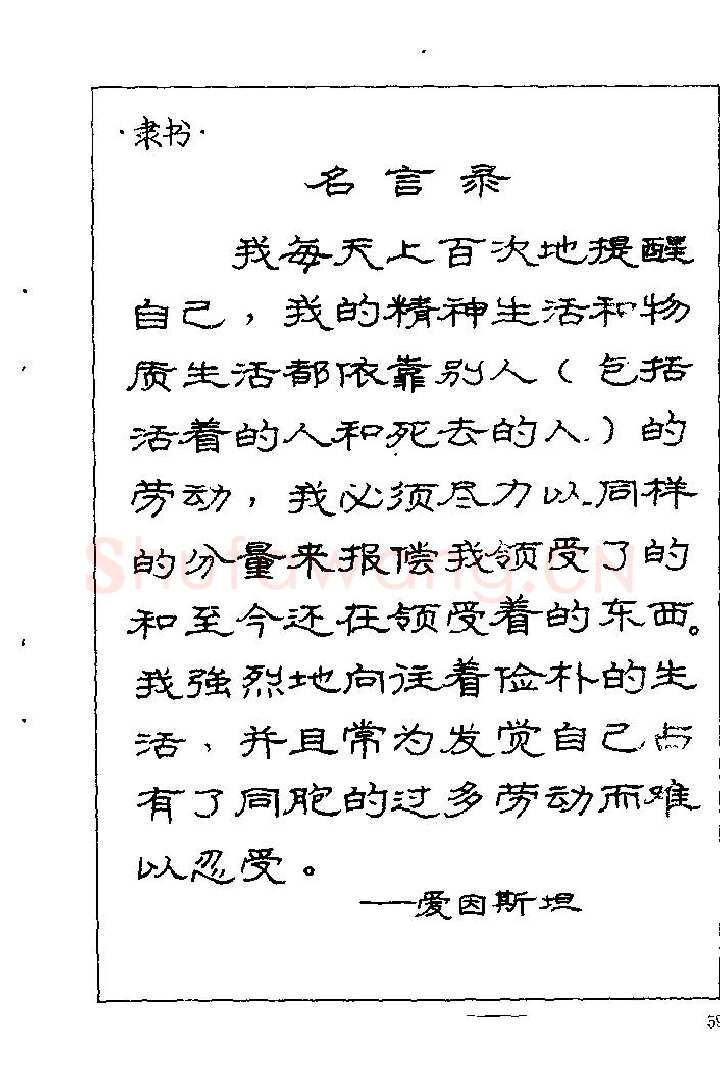 ·隶书·
名言录
我每天上百次地提醒
自己，我的精神生活和物
质生活都依靠别人（包括
活着的人和死去的人）的
劳动，我必须尽力以同样
的分量来报偿我领受了的
和至今还在领受着的东西。
我强烈地向往着俭朴的生
活、并且常为发觉自己占
有了同胞的过多劳动而难
以忍受。
——爱因斯坦
Shufawang.CN
59